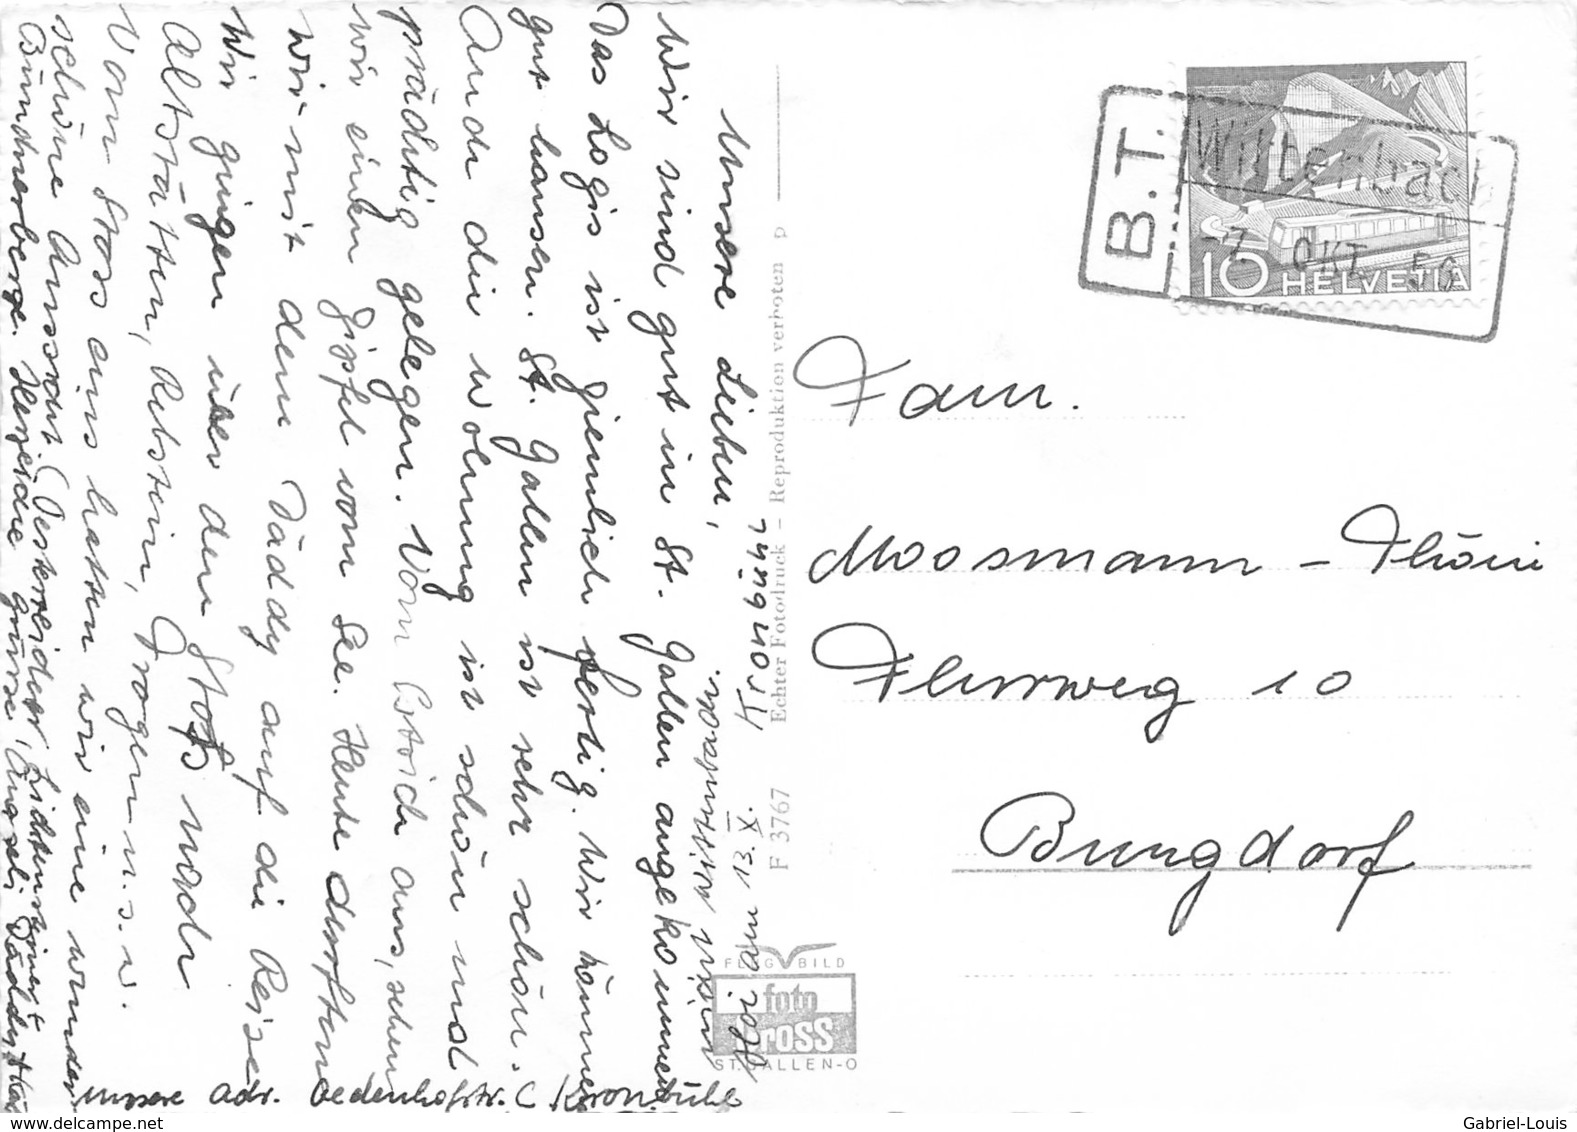 Unsere Lieben,
Wir sind gut in St. Gallen angekommen
Das Logis ist ziemlich fertig. Wir können
gut hausen. St. Gallen ist sehr schön.
Auch die Wohnung ist schön und
prächtig gelegen. Vom Estrich aus, sehen
wir einen Zipfel vom See. Heute durften
wir mit dem Däddy auf die Reise
Wir gingen über den Stoss nach
Altstätten, Rebstein, Trogen u.s.w.
Vom Stoss aus hatten wir eine wunder
schöne Aussicht. (Oesterreicher, Lichtensteiner
Bündnerberge. Herzliche Grüsse,
unsere Adr. Oedenhofstr. C Kronbühl
B.T. Wittenbach
-7. OKT. 56
10 HELVETIA
Fam.
Moosmann - Thöni
Flurweg 10
Burgdorf
Echter Fotodruck – Reproduktion verboten p
F 3767
FLUGBILD
foto
Gross
ST.GALLEN-O
Gabriel-Louis